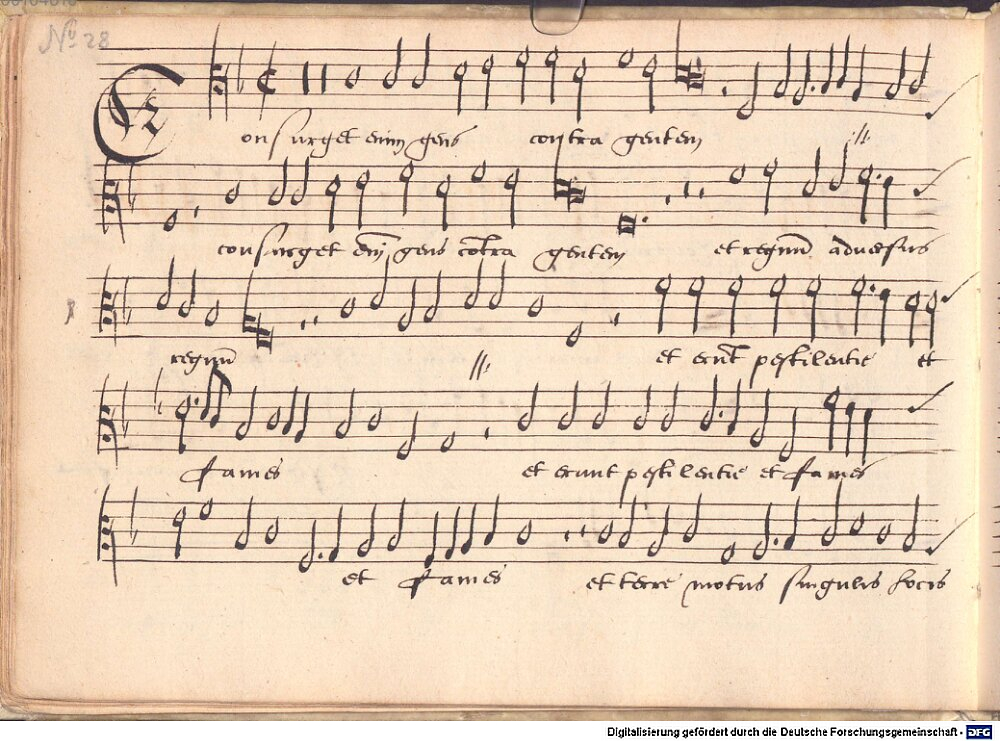 No 28
Consurget enim gens contra gentem //
consurget em̄ gens cōtra gentem et regnū aduersus
regnū // et erūt pestilentie et
fames et erunt pestilentie et fames
et fames et terre motus singulis locis
Digitalisierung gefördert durch die Deutsche Forschungsgemeinschaft - DFG